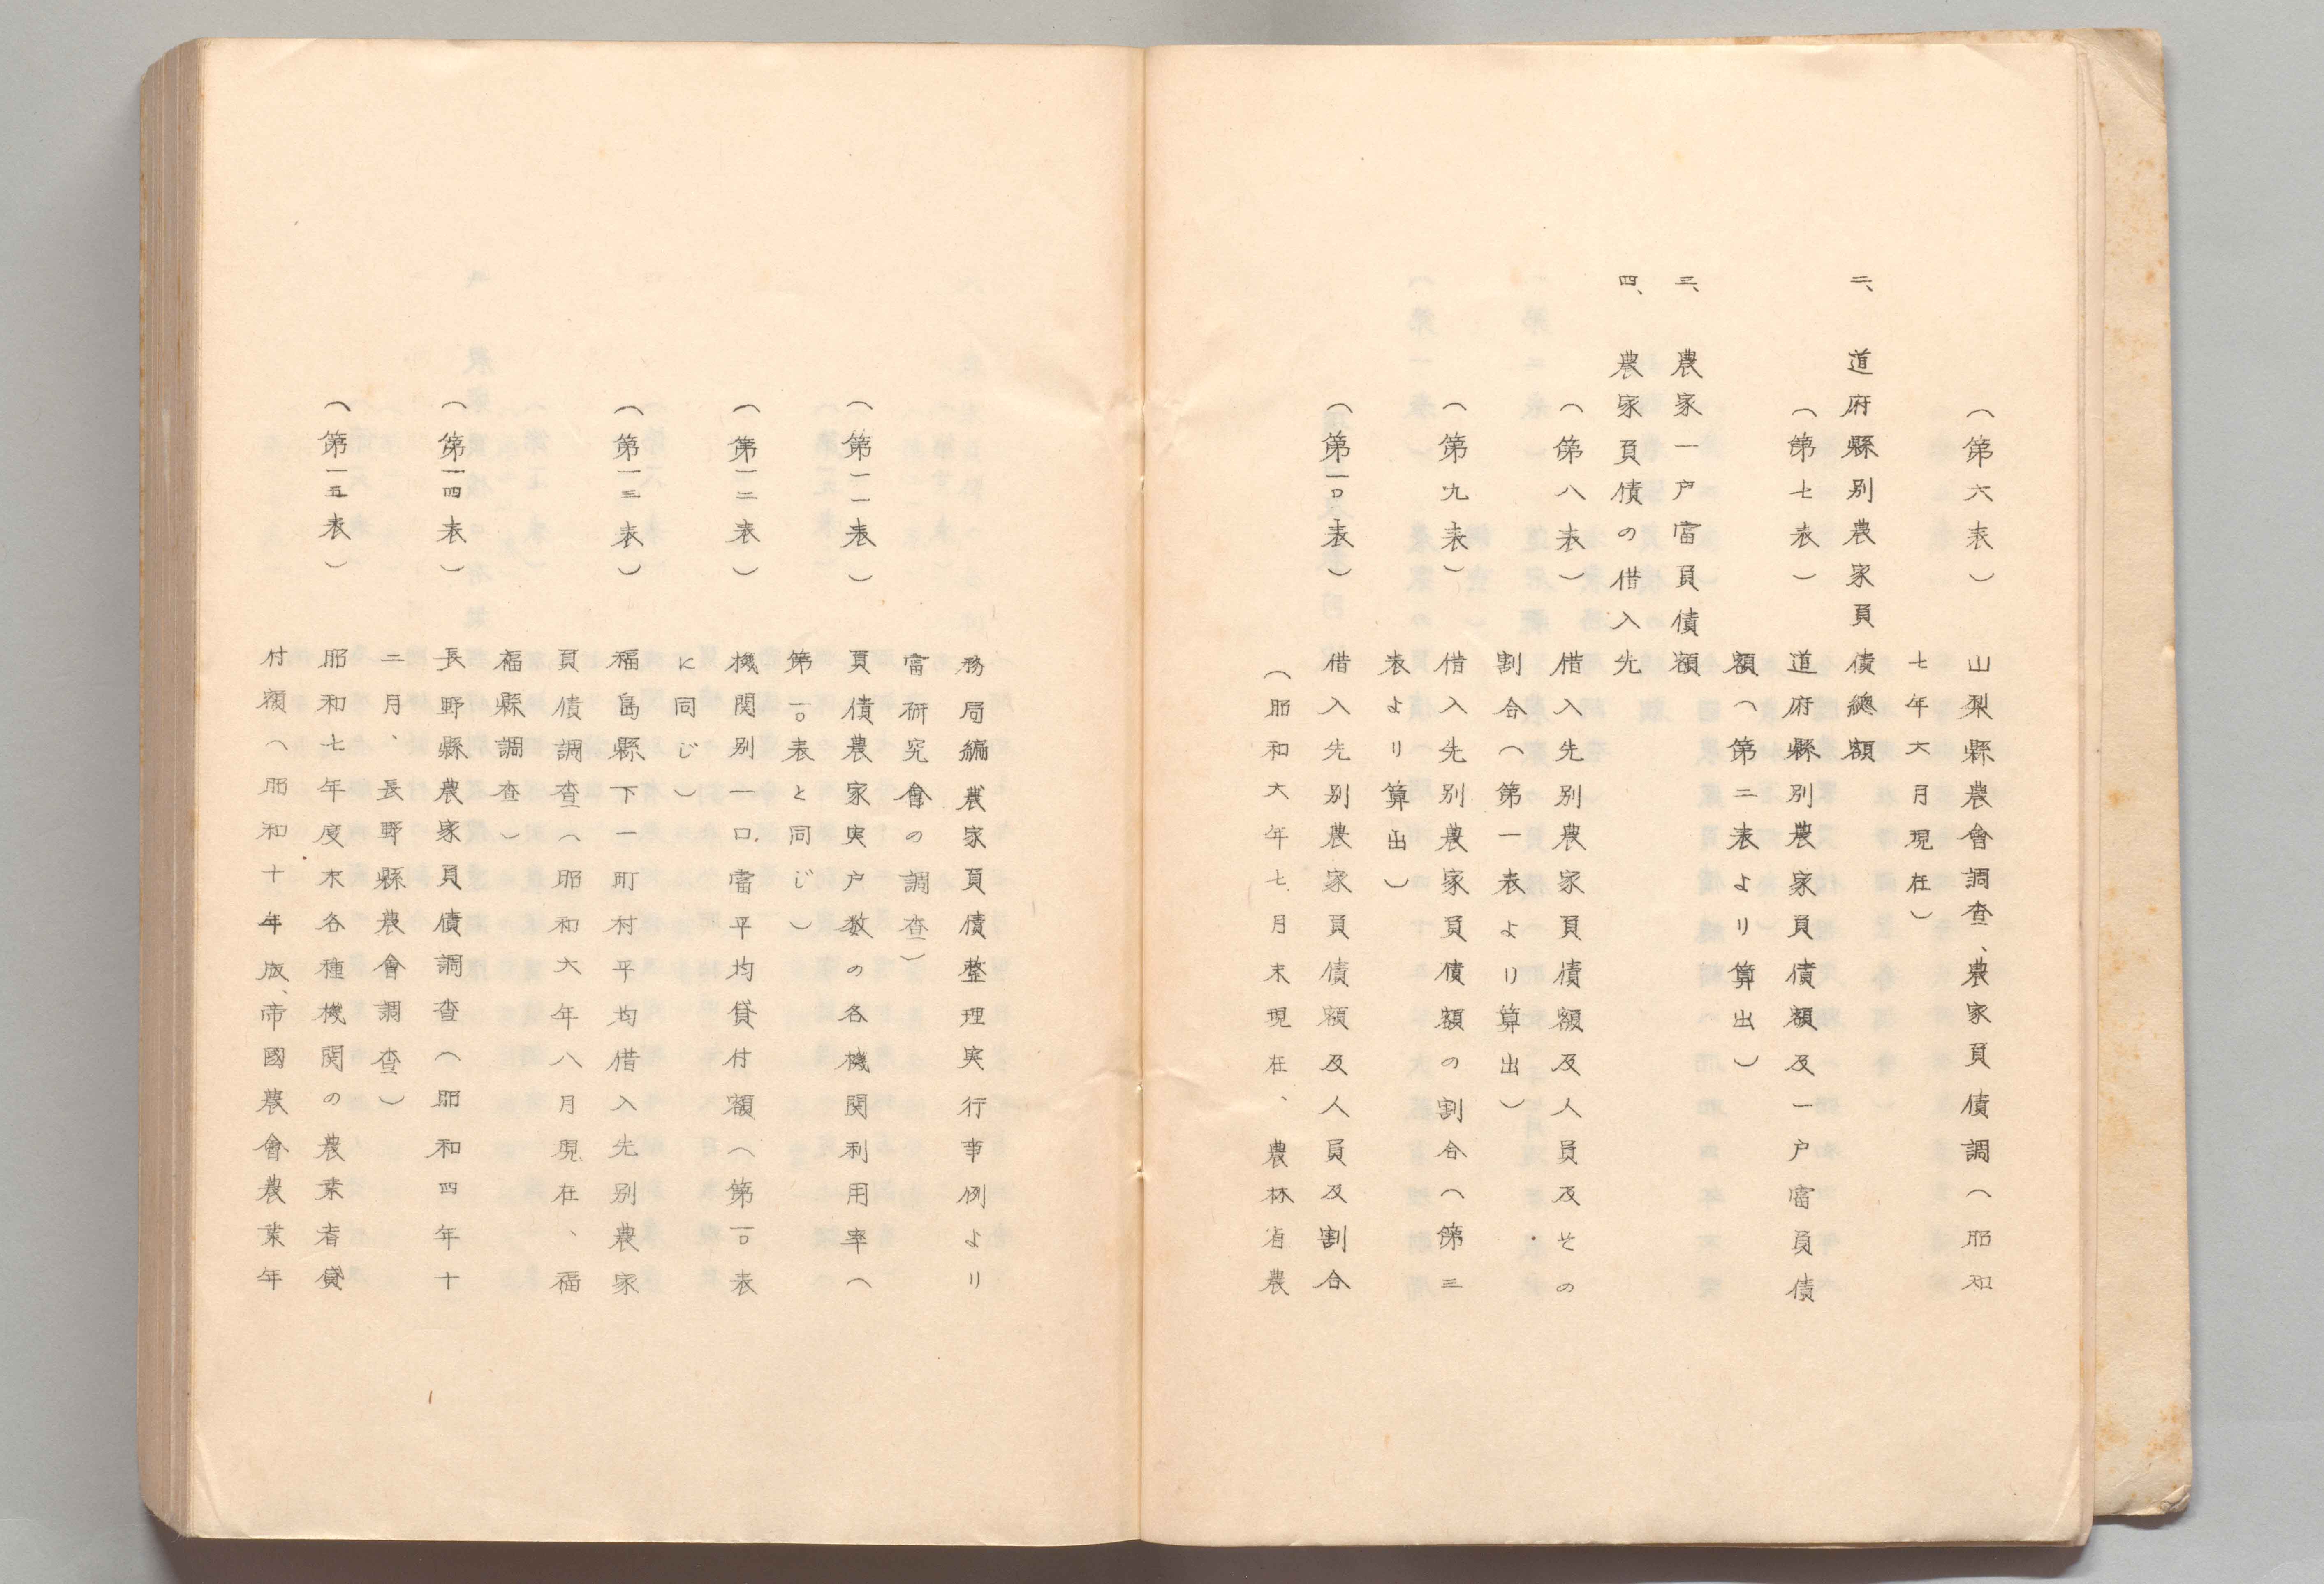 （第六表）　山梨縣農會調査、農家負債調（昭和
七年六月現在）
二、道府縣別農家負債總額
（第七表）　道府縣別農家負債額及一戸當負債
額（第二表より算出）
三、農家一戸當負債額
四、農家負債の借入先
（第八表）　借入先別農家負債額及人員及その
割合（第一表より算出）
（第九表）　借入先別農家負債額の割合（第三
表より算出）
（第一〇表）　借入先別農家負債額及人員及割合
（昭和六年七月末現在、農林省農
務局編農家負債整理実行事例より
當研究會の調査）
（第一一表）　負債農家実戸数の各機関利用率（
第一〇表と同じ）
（第一二表）　機関別一口當平均貸付額（第一〇表
に同じ）
（第一三表）　福島縣下一町村平均借入先別農家
負債調査（昭和六年八月現在、、福
福縣調査）
（第一四表）　長野縣農家負債調査（昭和四年十
二月、長野縣農會調査）
（第一五表）　昭和七年度末各種機関の農業者貸
付額（昭和十年版、帝國農會農業年